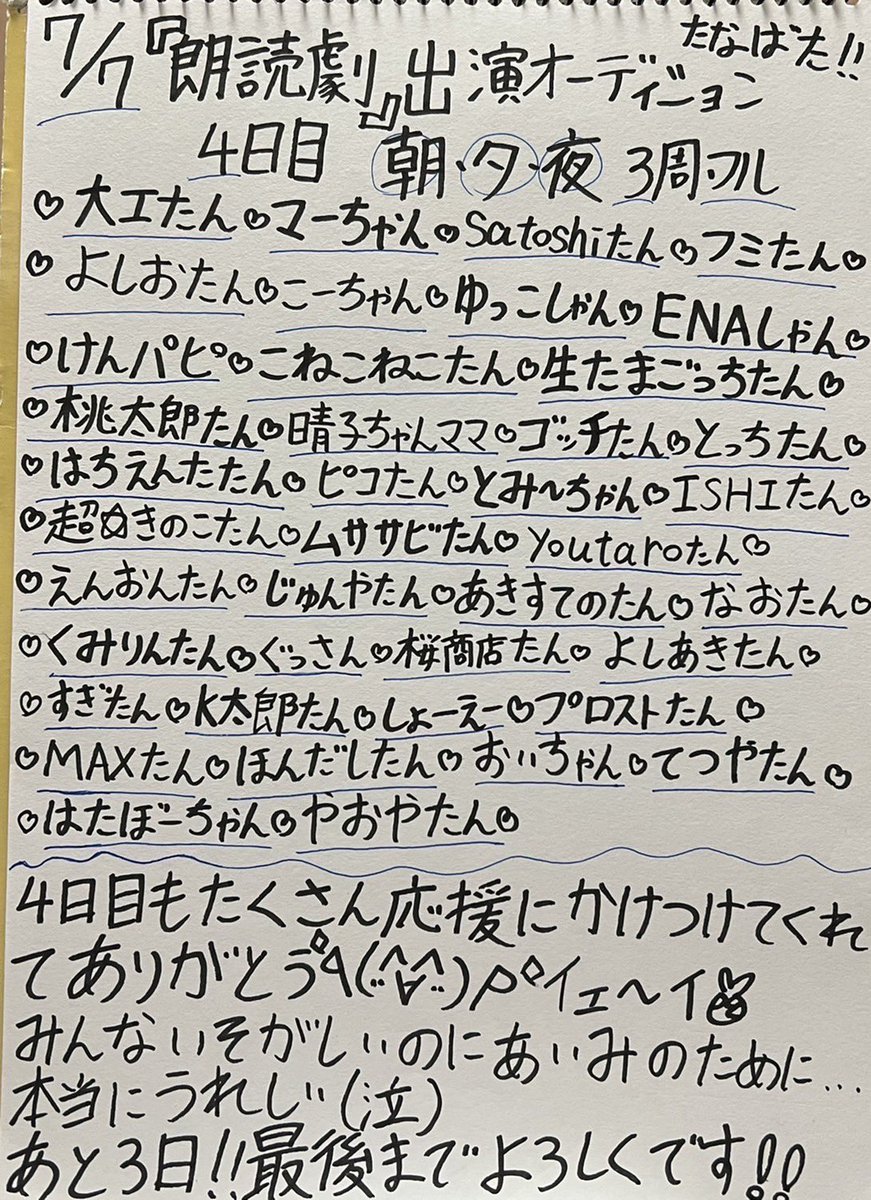 7/7『朗読劇』出演オーディション たなばた!!
4日目 朝・夕・夜 3周フル
♡大工たん♡マーちゃん♡Satoshiたん♡フミたん♡
♡よしおたん♡こーちゃん♡ゆっこしゃん♡ENAしゃん♡
♡けんパピ♡こねこねこたん♡生たまごっちたん♡
♡桃太郎たん♡晴子ちゃんママ♡ゴッチたん♡とっちたん♡
♡はちえんたたん♡ピコたん♡とみ〜ちゃん♡ISHIたん♡
♡超☆きのこたん♡ムササビたん♡youtaroたん♡
♡えんおんたん♡じゅんやたん♡あきすてのたん♡なおたん♡
♡くみりんたん♡ぐっさん♡桜商店たん♡よしあきたん♡
♡すぎたん♡K太郎たん♡しょーえー♡プロストたん♡
♡MAXたん♡ほんだしたん♡おいちゃん♡てつやたん♡
♡はたぼーちゃん♡やおやたん♡
4日目もたくさん応援にかけつけてくれ
てありがとう イェ〜イ
みんないそがしいのにあいみのために…
本当にうれしい(泣)
あと3日!!最後までよろしくです!!